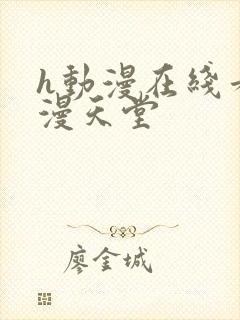 h動漫在綫
漫天堂
廖金城